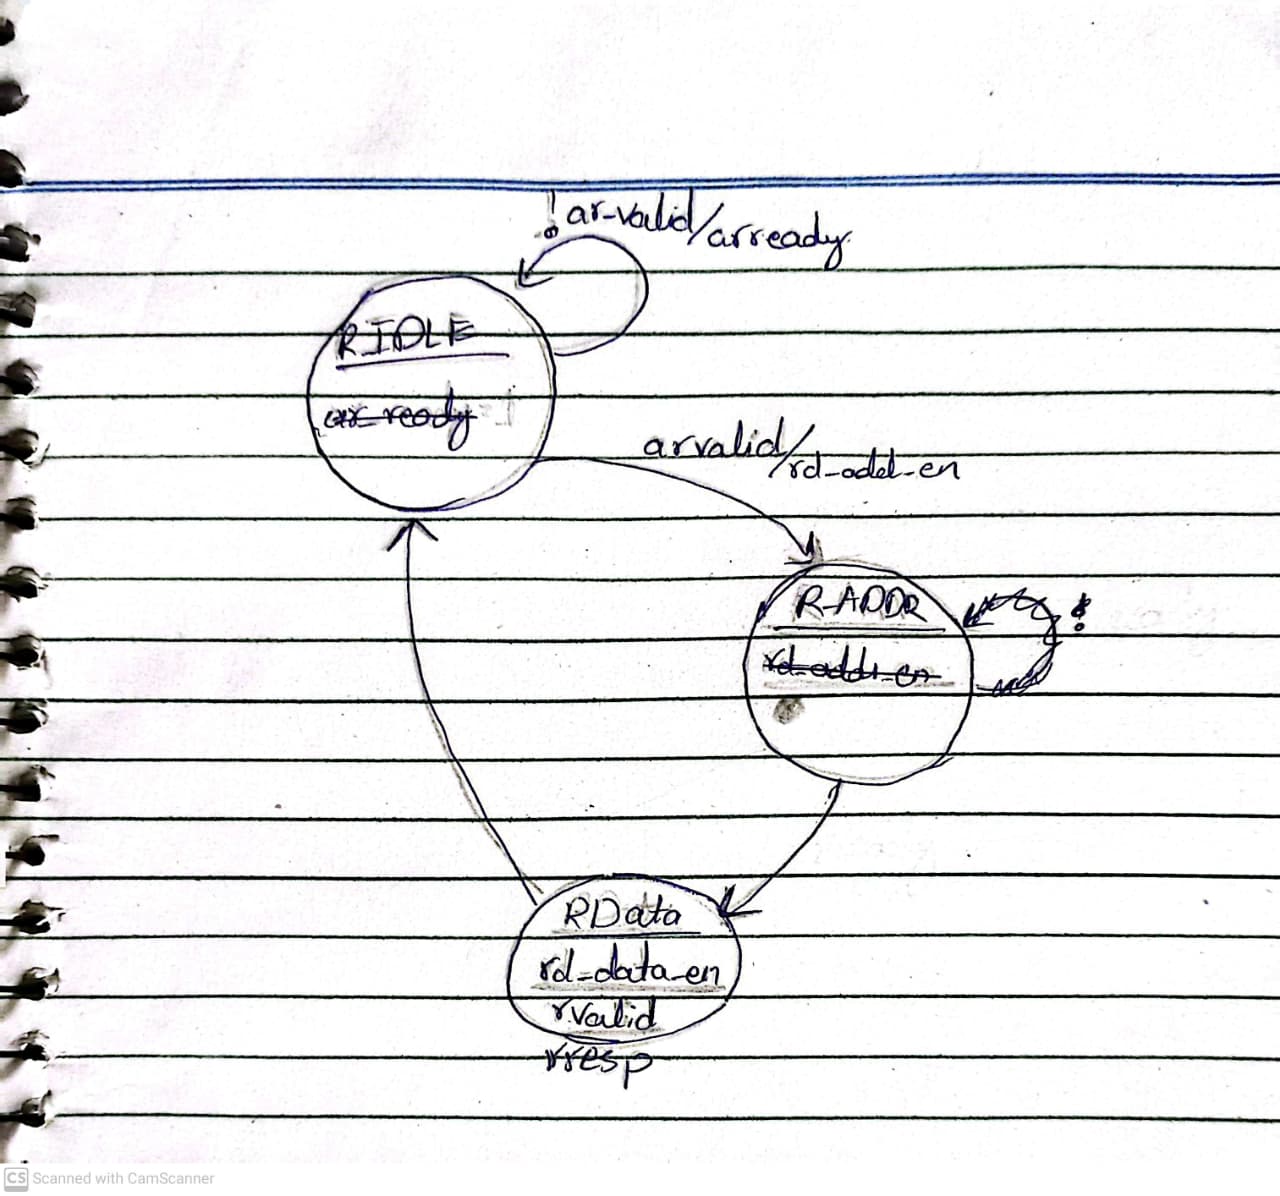 ! ar-valid/arready
R_IDLE
ar-ready
arvalid/rd-add-en
R-ADDR
!
rd-addr-en
RData
rd-data-en
rvalid
rresp
CS Scanned with CamScanner